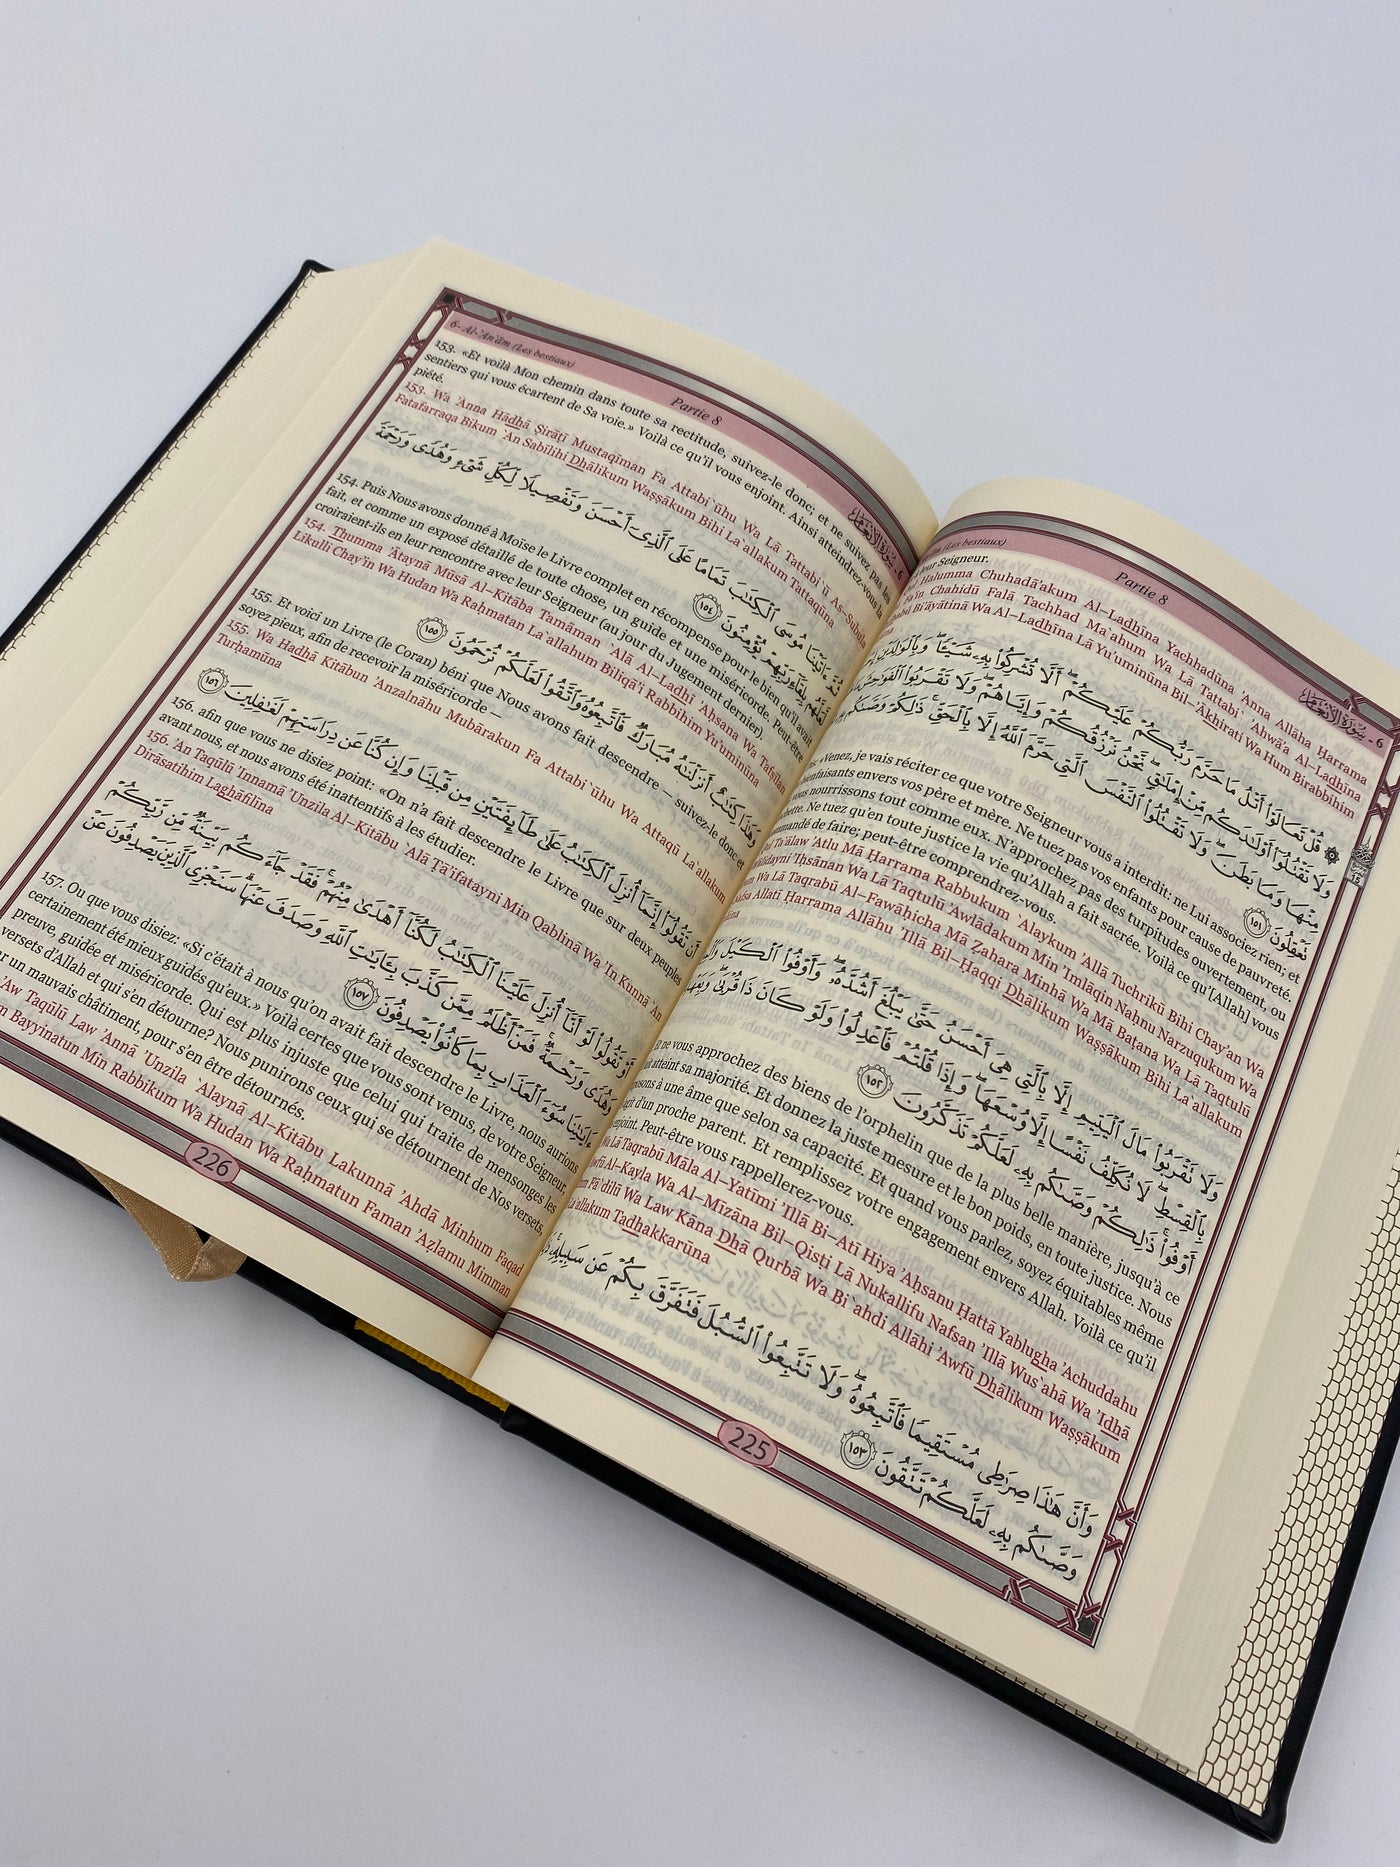 (Les bestiaux) Partie 8 سُورَةُ الأَنْعَام - 6
leur Seigneur.
Halumma Chuhadā'akum Al–Ladhīna Yachhadūna 'Anna Allāha Harrama
Fa'in Chahidū Falā Tachhad Ma`ahum Wa Lā Tattabi` 'Ahwā'a Al–Ladhīna
Bi'āyātinā Wa Al–Ladhīna Lā Yu'uminūna Bil–'Ākhirati Wa Hum Birabbihim
۞ قُلْ تَعَالَوْا۟ أَتْلُ مَا حَرَّمَ رَبُّكُمْ عَلَيْكُمْ ۖ أَلَّا تُشْرِكُوا۟ بِهِۦ شَيْـًٔا ۖ وَبِٱلْوَٰلِدَيْنِ
وَلَا تَقْتُلُوٓا۟ أَوْلَـٰدَكُم مِّنْ إِمْلَـٰقٍ ۖ نَّحْنُ نَرْزُقُكُمْ وَإِيَّاهُمْ ۖ وَلَا تَقْرَبُوا۟ ٱلْفَوَٰحِشَ
مِنْهَا وَمَا بَطَنَ ۖ وَلَا تَقْتُلُوا۟ ٱلنَّفْسَ ٱلَّتِى حَرَّمَ ٱللَّهُ إِلَّا بِٱلْحَقِّ ۚ ذَٰلِكُمْ وَصَّىٰكُم
تَعْقِلُونَ ١٥١
«Venez, je vais réciter ce que votre Seigneur vous a interdit: ne Lui associez rien; et
bienfaisants envers vos père et mère. Ne tuez pas vos enfants pour cause de pauvreté.
nourrissons tout comme eux. N'approchez pas des turpitudes ouvertement, ou
Ne tuez qu'en toute justice la vie qu'Allah a fait sacrée. Voilà ce qu'[Allah] vous
de faire; peut-être comprendrez-vous.
Ta`ālaw 'Atlu Mā Harrama Rabbukum `Alaykum 'Allā Tuchrikū Bihi Chay'an Wa
'Iḥsānan Wa Lā Taqtulū 'Awlādakum Min 'Imlāqin Naḥnu Narzuqukum Wa
Wa Lā Taqrabū Al–Fawāḥicha Mā Zahara Minhā Wa Mā Baṭana Wa Lā Taqtulū
Allatī Harrama Allāhu 'Illā Bil–Ḥaqqi Dhālikum Waṣṣākum Bihi La`allakum
وَلَا تَقْرَبُوا۟ مَالَ ٱلْيَتِيمِ إِلَّا بِٱلَّتِى هِىَ أَحْسَنُ حَتَّىٰ يَبْلُغَ أَشُدَّهُۥ ۖ وَأَوْفُوا۟ ٱلْكَيْلَ
بِٱلْقِسْطِ ۖ لَا نُكَلِّفُ نَفْسًا إِلَّا وُسْعَهَا ۖ وَإِذَا قُلْتُمْ فَٱعْدِلُوا۟ وَلَوْ كَانَ ذَا قُرْبَىٰ ۖ
أَوْفُوا۟ ۚ ذَٰلِكُمْ وَصَّىٰكُم بِهِۦ لَعَلَّكُمْ تَذَكَّرُونَ ١٥٢
ne vous approchez des biens de l'orphelin que de la plus belle manière, jusqu'à ce
atteint sa majorité. Et donnez la juste mesure et le bon poids, en toute justice. Nous
à une âme que selon sa capacité. Et quand vous parlez, soyez équitables même
d'un proche parent. Et remplissez votre engagement envers Allah. Voilà ce qu'il
enjoint. Peut-être vous rappellerez-vous.
Lā Taqrabū Māla Al–Yatīmi 'Illā Bi–Atī Hiya 'Aḥsanu Ḥattá Yablugha 'Achuddahu
Al–Kayla Wa Al–Mīzāna Bil–Qisṭi Lā Nukallifu Nafsan 'Illā Wus`ahā Wa 'Idhā
Fā`dilū Wa Law Kāna Dhā Qurbá Wa Bi`ahdi Allāhi 'Awfū Dhālikum Waṣṣākum
La`allakum Tadhakkarūna
وَأَنَّ هَـٰذَا صِرَٰطِى مُسْتَقِيمًا فَٱتَّبِعُوهُ ۖ وَلَا تَتَّبِعُوا۟ ٱلسُّبُلَ فَتَفَرَّقَ بِكُمْ عَن سَبِيلِهِۦ ۚ
وَصَّىٰكُم بِهِۦ لَعَلَّكُمْ تَتَّقُونَ ١٥٣
225
6- Al-'An`ām (Les bestiaux) Partie 8 سُورَةُ الأَنْعَام - 6
153. «Et voilà Mon chemin dans toute sa rectitude, suivez-le donc; et ne suivez pas les
sentiers qui vous écartent de Sa voie.» Voilà ce qu'il vous enjoint. Ainsi atteindrez-vous la
piété.
153. Wa 'Anna Hādhā Ṣirāṭī Mustaqīman Fa Attabi`ūhu Wa Lā Tattabi`ū As–Subula
Fatafarraqa Bikum `An Sabīlihi Dhālikum Waṣṣākum Bihi La`allakum Tattaqūna
ءَاتَيْنَا مُوسَى ٱلْكِتَـٰبَ تَمَامًا عَلَى ٱلَّذِىٓ أَحْسَنَ وَتَفْصِيلًا لِّكُلِّ شَىْءٍ وَهُدًى وَرَحْمَةً
لَّعَلَّهُم بِلِقَآءِ رَبِّهِمْ يُؤْمِنُونَ ١٥٤
154. Puis Nous avons donné à Moïse le Livre complet en récompense pour le bien qu'il avait
fait, et comme un exposé détaillé de toute chose, un guide et une miséricorde. Peut-être
croiraient-ils en leur rencontre avec leur Seigneur (au jour du Jugement dernier).
154. Thumma 'Ātaynā Mūsá Al–Kitāba Tamāman `Alá Al–Ladhī 'Aḥsana Wa Tafṣīlan
Likulli Chay'in Wa Hudan Wa Raḥmatan La`allahum Biliqā'i Rabbihim Yu'uminūna
وَهَـٰذَا كِتَـٰبٌ أَنزَلْنَـٰهُ مُبَارَكٌ فَٱتَّبِعُوهُ وَٱتَّقُوا۟ لَعَلَّكُمْ تُرْحَمُونَ ١٥٥
155. Et voici un Livre (le Coran) béni que Nous avons fait descendre – suivez-le donc et
soyez pieux, afin de recevoir la miséricorde –
155. Wa Hadhā Kitābun 'Anzalnāhu Mubārakun Fa Attabi`ūhu Wa Attaqū La`allakum
Turḥamūna
أَن تَقُولُوٓا۟ إِنَّمَآ أُنزِلَ ٱلْكِتَـٰبُ عَلَىٰ طَآئِفَتَيْنِ مِن قَبْلِنَا وَإِن كُنَّا عَن دِرَاسَتِهِمْ لَغَـٰفِلِينَ ١٥٦
156. afin que vous ne disiez point: «On n'a fait descendre le Livre que sur deux peuples
avant nous, et nous avons été inattentifs à les étudier.
156. 'An Taqūlū 'Innamā 'Unzila Al–Kitābu `Alá Ṭā'ifatayni Min Qablinā Wa 'In Kunnā `An
Dirāsatihim Laghāfilīna
أَوْ تَقُولُوا۟ لَوْ أَنَّآ أُنزِلَ عَلَيْنَا ٱلْكِتَـٰبُ لَكُنَّآ أَهْدَىٰ مِنْهُمْ ۚ فَقَدْ جَآءَكُم بَيِّنَةٌ مِّن رَّبِّكُمْ
وَهُدًى وَرَحْمَةٌ ۚ فَمَنْ أَظْلَمُ مِمَّن كَذَّبَ بِـَٔايَـٰتِ ٱللَّهِ وَصَدَفَ عَنْهَا ۗ سَنَجْزِى ٱلَّذِينَ يَصْدِفُونَ عَنْ
ءَايَـٰتِنَا سُوٓءَ ٱلْعَذَابِ بِمَا كَانُوا۟ يَصْدِفُونَ ١٥٧
157. Ou que vous disiez: «Si c'était à nous qu'on avait fait descendre le Livre, nous aurions
certainement été mieux guidés qu'eux.» Voilà certes que vous sont venus, de votre Seigneur,
preuve, guidée et miséricorde. Qui est plus injuste que celui qui traite de mensonges les
versets d'Allah et qui s'en détourne? Nous punirons ceux qui se détournent de Nos versets,
un mauvais châtiment, pour s'en être détournés.
'Aw Taqūlū Law 'Annā 'Unzila `Alaynā Al–Kitābu Lakunnā 'Ahdá Minhum Faqad
Bayyinatun Min Rabbikum Wa Hudan Wa Raḥmatun Faman 'Aẓlamu Mimman
226